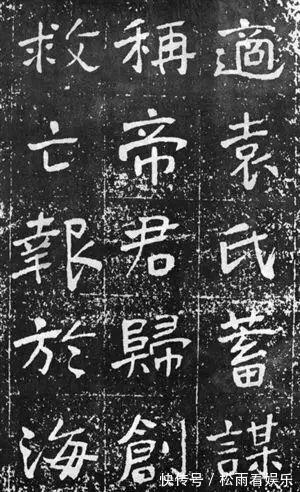 適袁氏蓄謀
稱帝君歸創
救亡報於海
快传号 / 松雨看娱乐